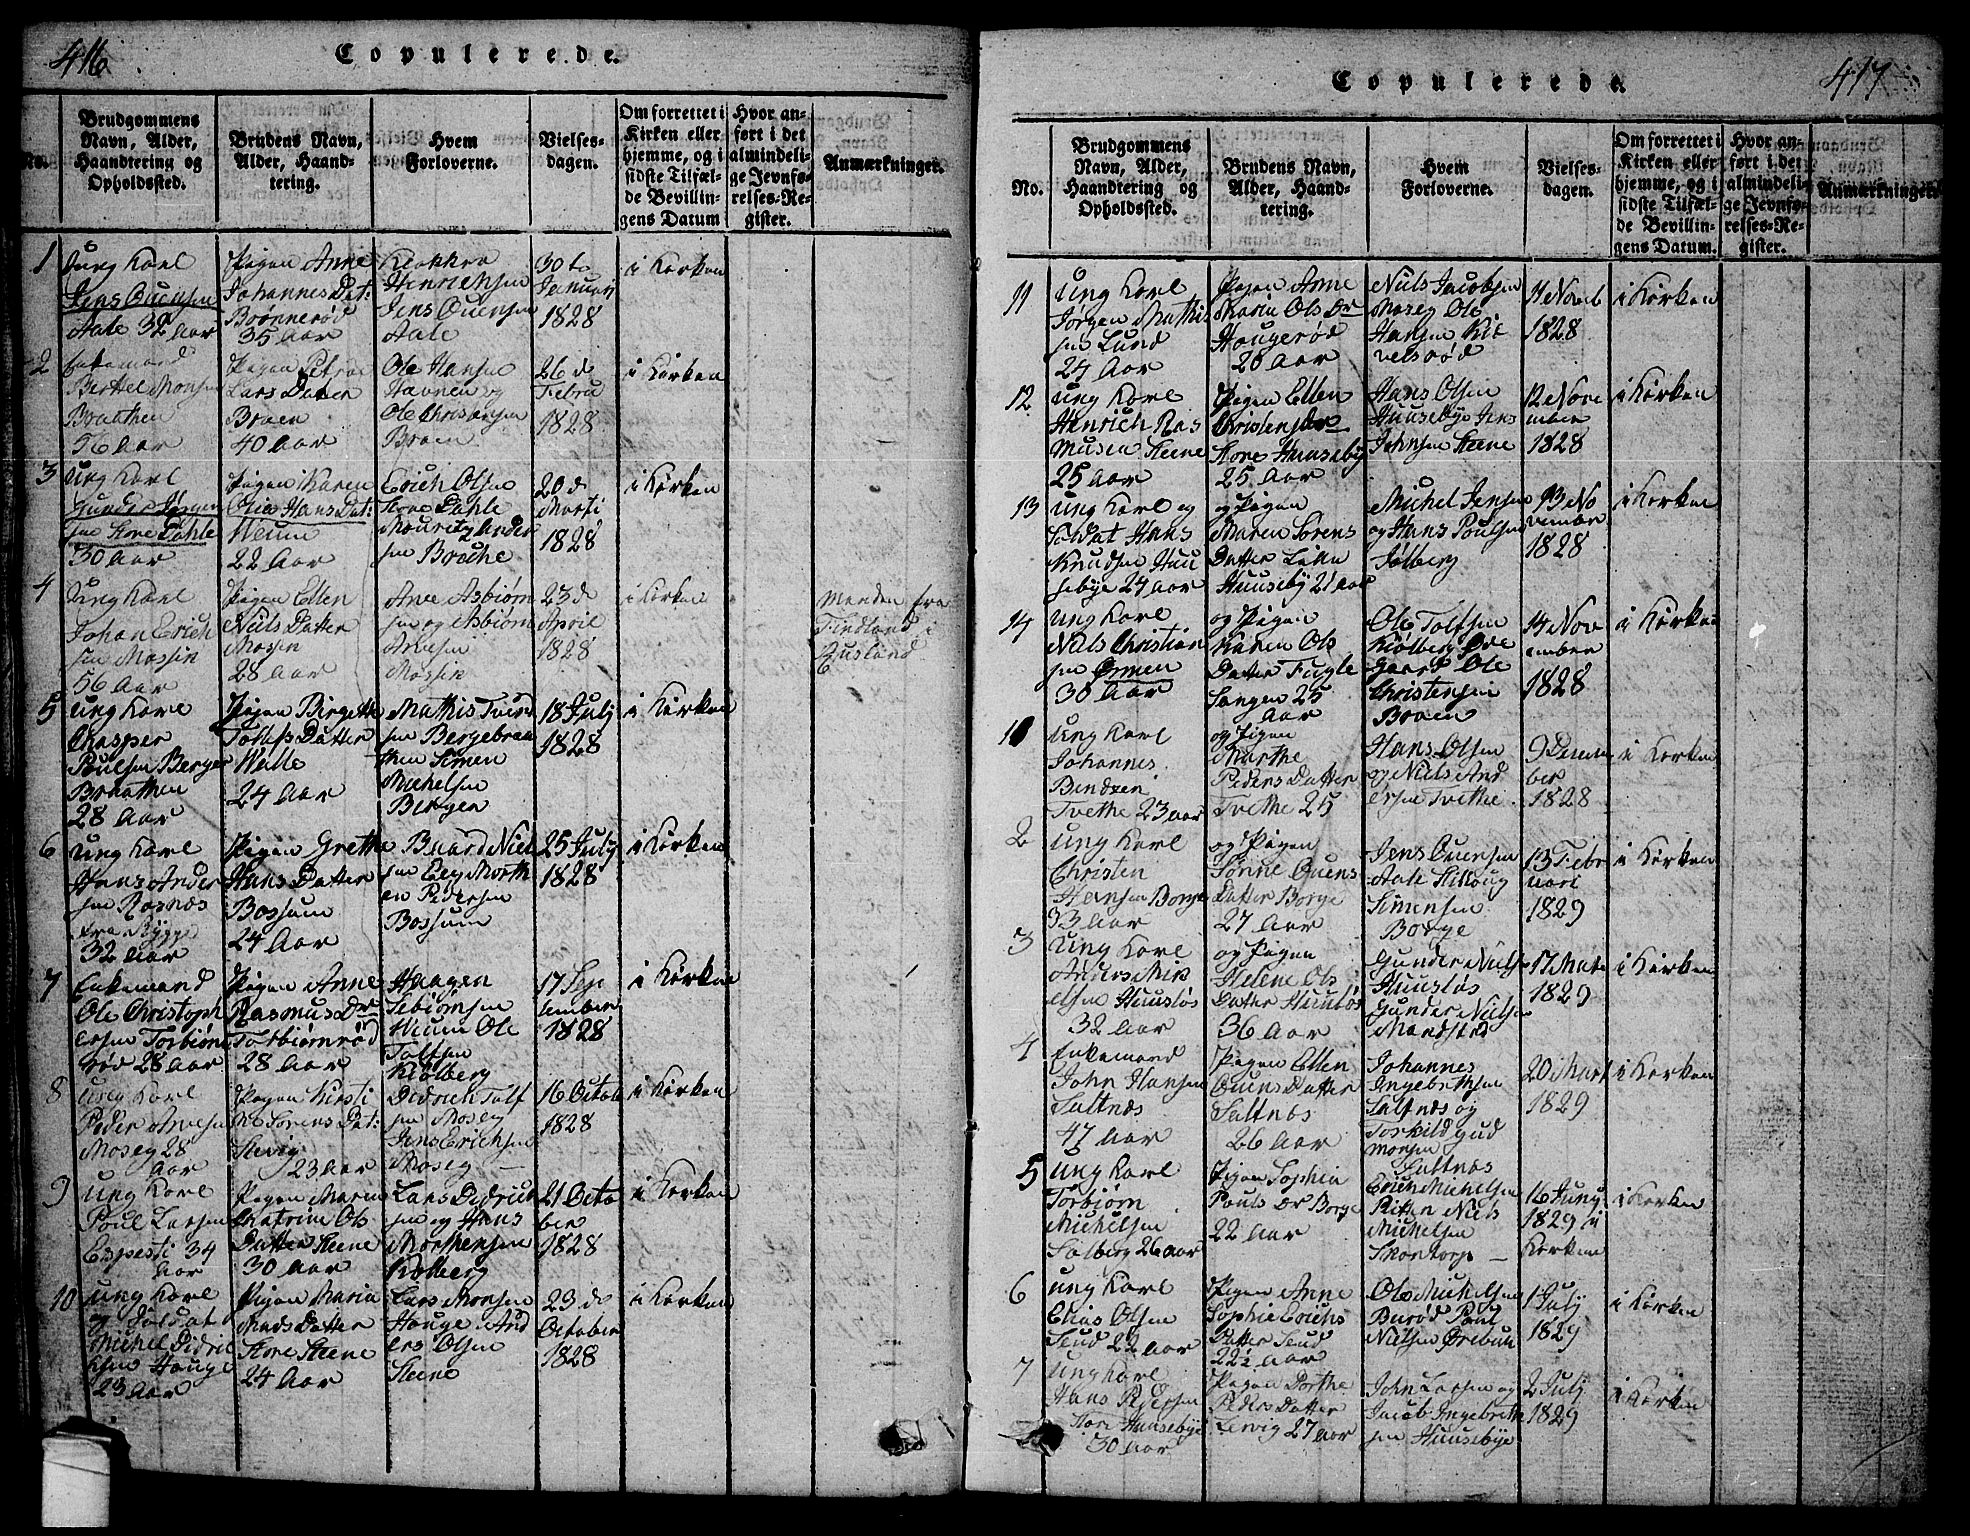 416
Copulerede.
No.
Brudgommens
Navn, Alder,
Haandtering og
Opholdssted.
Brudens Navn,
Alder, Haand-
tering.
Hvem
Forloverne.
Vielses-
dagen.
Om forrettet i
Kirken eller
hjemme, og i
sidste Tilfæl-
de Bevillin-
gens Datum
Hvor an-
ført i det
almindeli-
ge Jevnfø-
relses-Re-
gister.
Anmærkninger.
1
Ung Karl
Jens Ouensen
Aale 32 aar
Pigen Anne
Johannes Dat:
Brønnerød
35 aar
Klokker
Henrichsen
Jens Ouensen
Aale
30te
Januari
1828
i Kirken
2
Enkemand
Berthel Monsen
Braathen
56 aar
Pigen Petroe
Lars Datter
Braen
40 aar
Ole Hansen
Havnen og
Ole Christensen
Braen
26 de
Febru
1828
i Kirken
3
Ung Karl
Gunder Jørgen
sen Store Dahle
30 aar
Pigen Karen
Olia Hans Dat:
Weum
22 Aar
Erich Olsen
Store Dahle
Mouritz Ander
sen Broche
20 de
Marti
1828
i Kirken
4
Ung Karl
Johan Erich
sen Mossin
56 Aar
Pigen Ellen
Niels Datter
Mossin
28 aar
Arve Asbiørn
sen og Asbiørn
Arvesen
Mossin
23 de
April
1828
i Kirken
Manden fra
Findland i
Rusland
5
Ung Karl
Chasper
Poulsen Berger
Braathen
28 aar
Pigen Birgette
Tolefs Datter
Walle
24 Aar
Mathis Tver
sen Bergebraa
then Simen
Michelsen
Bergen
18 July
1828
i Kirken
6
Ung Karl
Hans Ander
sen Rosnæs
fra Rygge
32 aar
Pigen Grethe
Hans Datter
Bossum
24 Aar
Baard Niel
sen Eeg Morth
en Pedersen
Bossum
25 July
1828
i Kirken
7
Enkemand
Ole Christoph
ersen Torbiørn
rød 28 aar
Pigen Anne
Rasmus Dr
Torbiørnrød
28 aar
Haagen
Sebiørnsen
Weum Ole
Tolfsen
Kiølberg
17 Sep
tember
1828
i Kirken
8
Ung Karl
Peder Arvesen
Moseg 28
aar
Pigen Kirsti
Ne Sørens Dat:
Slevig
23 aar
Didrich Tolf
sen Moseg
Jens Erichsen
Moseg
16 Octob
1828
i Kirken
9
Ung Karl
Poul Larsen
Enpesti 34
aar
Pigen Maria
Chatrine Ols
Datter Steene
30 aar
Lars Didrich
sen og Hans
Morthensen
Kiølberg
21 Octo
ber
1828
i Kirken
10
Ung Karl
og Soldat
Michel Didri
chsen Houge
23 aar
Pigen Maria
Mads Datter
Store Steene
24 aar
Lars Monsen
Houge And
ers Olsen
Steene
23 de
October
1828
i Kirken
417
Copulerede.
No.
Brudgommens
Navn, Alder,
Haandtering og
Opholdssted.
Brudens Navn,
Alder, Haand-
tering.
Hvem
Forloverne.
Vielses-
dagen.
Om forrettet i
Kirken eller
hjemme, og i
sidste Tilfæl-
de Bevillin-
gens Datum.
Hvor an-
ført i det
almindeli-
ge Jevnfø-
relses-Re-
gister.
Anmærkninger.
11
Ung Karl
Jørgen Mathi
sen Lund
24 Aar
Pigen Anne
Maria Ols Dr
Hougerød
28 aar
Niels Jacobsen
Moseg Ole
Hansen Kit
velsrød
11 Novemb
1828
i Kirken
12
Ung Karl
Henrich Ras
musen Steene
25 aar
Pigen Ellen
Christens Dr
Store Huuseby
25 aar
Hans Olsen
Huusebye Jens
Johnsen Steene
12 Nove
mber
1828
i Kirken
13
Ung Karl og
Soldat Hans
Knudsen Huu
sebye 24 aar
og Pigen
Maren Sørens
Datter Lille
Huuseby 21 aar
Michel Jensen
og Hans Poulsen
Solberg
13 No
vember
1828
i Kirken
14
Ung Karl
Niels Christian
sen Ørmen
30 aar
og Pigen
Karen Ols
Datter Fugle
Sangen 25
aar
Ole Tolfsen
Kiølberg Øve
Gaard Ole
Christensen
Braen
14 Nov
ember
1828
i Kirken
1
Ung Karl
Johannes
Bendzen
Tvethe 23 aar
og Pigen
Marthe
Peders Datter
Tvethe 25
Hans Olsen
og Niels And
ersen Tvethe
9 Decem
ber
1828
i Kirken
2
Ung Karl
Christen
Hansen Borge
33 aar
og Pigen
Sønne Ouens
Datter Borge
27 aar
Jens Ouensen
Aale Helloug
Simensen
Borge
13 Febr
uari
1829
i Kirken
3
Ung Karl
Anders Mich
elsen Huusløs
32 aar
og Pigen
Helene Ols
Datter Huusløs
36 aar
Gunder Niels
Huusløs
Gunder Nielsen
Mandstad
17 Marti
1829
i Kirken
4
Enkemand
John Hansen
Saltnæs
47 aar
Pigen Ellen
Ouens Datter
Saltnæs
26 aar
Johannes
Ingebrethsen
Saltnæs og
Torkild Gud
morsen
Saltnæs
20 Mart
1829
i Kirken
5
Ung Karl
Torbiørn
Michelsen
Solberg 26 aar
Pigen Sophia
Pouls Dr Borge
22 aar
Erich Michelsen
Riiten Niels
Michelsen
Skontorp
16 Juny
1829 i
Kirken
i Kirken
6
Ung Karl
Elias Olsen
Seud 22 aar
Pigen Anne
Sophie Erichs
Datter Seud
22½ aar
Ole Michelsen
Burød Poul
Nielsen Ørebun
1 July
1829
i Kirken
7
Ung Karl
Hans Pedersen
Store Huusebye
30 aar
Pigen Dorthe
Peders Datter
Lervig 27 aar
John Larsen og
Jacob Ingebreth
sen Huusebye
2 July
1829
i Kirken